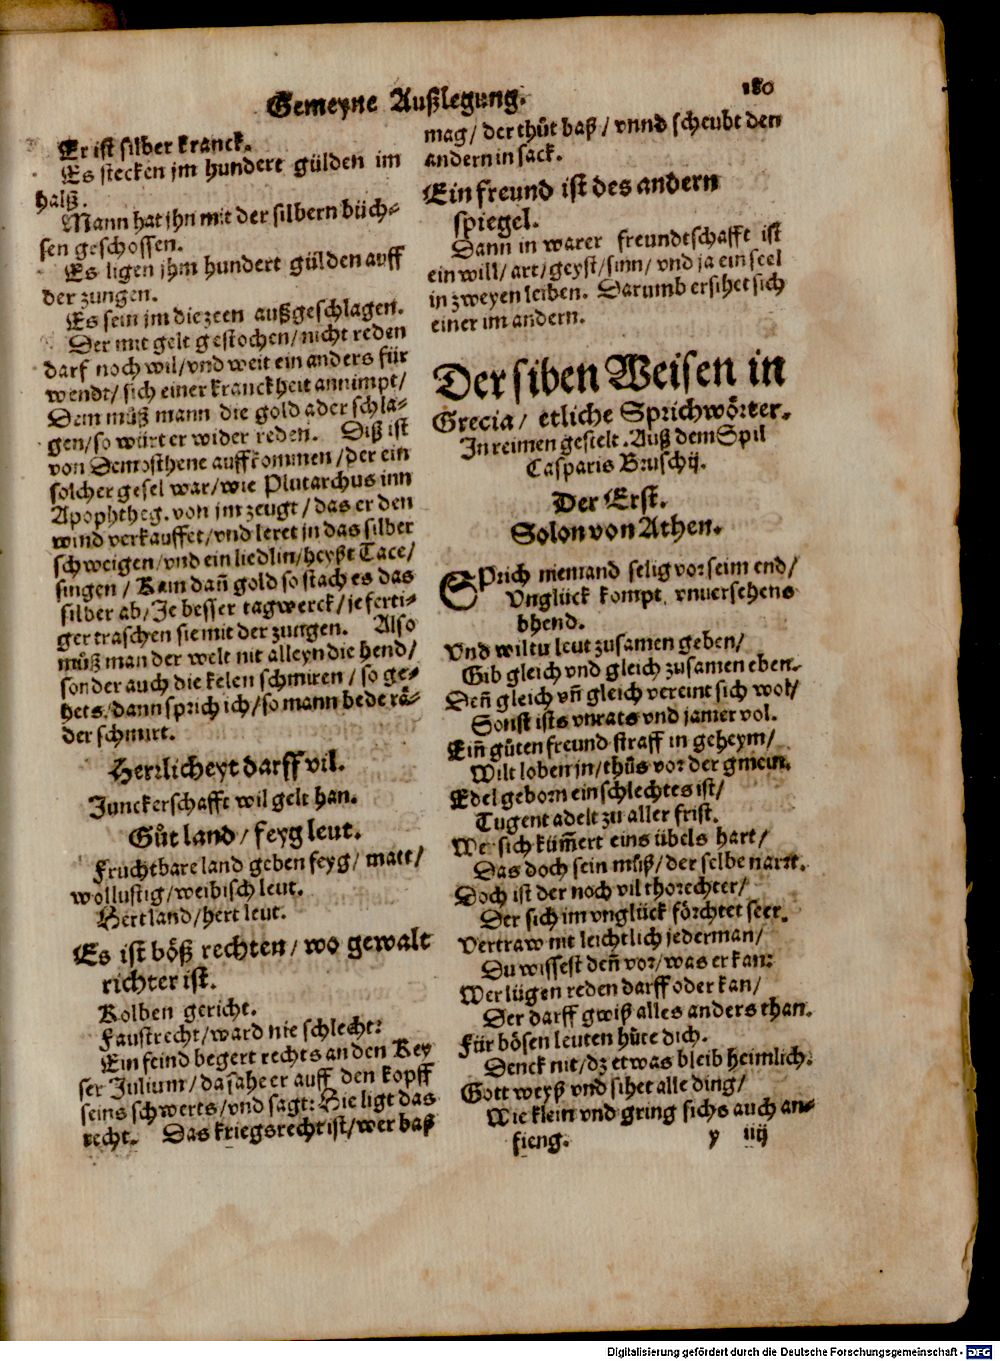 Gemeyne Außlegung. 180
Er ist silber kranck.
Es stecken jm hundert gülden im
halß.
Mann hat jhn mit der silbern büch-
sen geschossen.
Es ligen jhm hundert gülden auff
der zungen.
Es sein jm die zeen außgeschlagen.
Der mit gelt gestochen/ nicht reden
darf noch wil/ vnd weit ein anders für
wendt/ sich einer kranckheit annimpt/
Dem müß mann die gold ader schla-
gen/ so würt er wider reden. Diß ist
von Demosthene auffkommen/ der ein
solcher gesel war/ wie Plutarchus inn
Apophtheg. von jm zeugt/ das er den
wind verkauffet/ vnd leret in das silber
schweigen/ vnd ein liedlin/ heyßt Tace/
singen/ Kam dañ gold so stach es das
silber ab/ Je besser tagwerck/ je ferti-
ger traschen sie mit der zungen. Also
müß man der welt nit alleyn die hend/
sonder auch die kelen schmiren/ so ge-
hets/ dann sprich ich/ so mann bede rä-
der schmirt.
Herrlicheyt darff vil.
Junckerschafft wil gelt han.
Gůt land/ feyg leut.
Fruchtbare land geben feyg/ matt/
wollustig/ weibisch leut.
Hert land/ hert leut.
Es ist böß rechten/ wo gewalt
richter ist.
Kolben gericht.
Faustrecht/ ward nie schlecht:
Ein feind begert rechts an den Key
ser Julium/ da sahe er auff den kopff
seins schwerts/ vnd sagt: Hie ligt das
recht. Das kriegsrecht ist/ wer baß
mag/ der thůt baß/ vnnd scheubt den
andern in sack.
Ein freund ist des andern
spiegel.
Dann in warer freundtschafft ist
ein will/ art/ geyst/ sinn/ vnd ja ein seel
in zweyen leiben. Darumb ersihet sich
einer im andern.
Der siben Weisen in
Grecia/ etliche Sprichwörter.
In reimen gestelt. Auß dem Spil
Casparis Bruschij.
Der Erst.
Solon von Athen.
SPrich niemand selig vor seim end/
Vnglück kompt vnuersehens
bhend.
Vnd wiltu leut zusamen geben/
Gib gleich vnd gleich zusamen eben.
Deñ gleich vñ gleich vereint sich wol/
Sonst ists vnrats vnd jamer vol.
Eiñ gůten freund straff in geheym/
Wilt loben jn/ thůs vor der gmein.
Edel geborn ein schlechtes ist/
Tugent adelt zu aller frist.
Wer sich küm̃ert eins übels hart/
Das doch sein můß/ der selbe narrt.
Doch ist der noch vil thorechter/
Der sich im vnglück förchtet seer.
Vertraw nit leichtlich jederman/
Du wissest deñ vor/ was er kan:
Wer lügen reden darff oder kan/
Der darff gwiß alles anders than.
Für bösen leuten hüte dich.
Denck nit/ dz etwas bleib heimlich:
Gott weyß vnd sihet alle ding/
Wie klein vnd gring sichs auch an-
fieng. y iiij
Digitalisierung gefördert durch die Deutsche Forschungsgemeinschaft - DFG